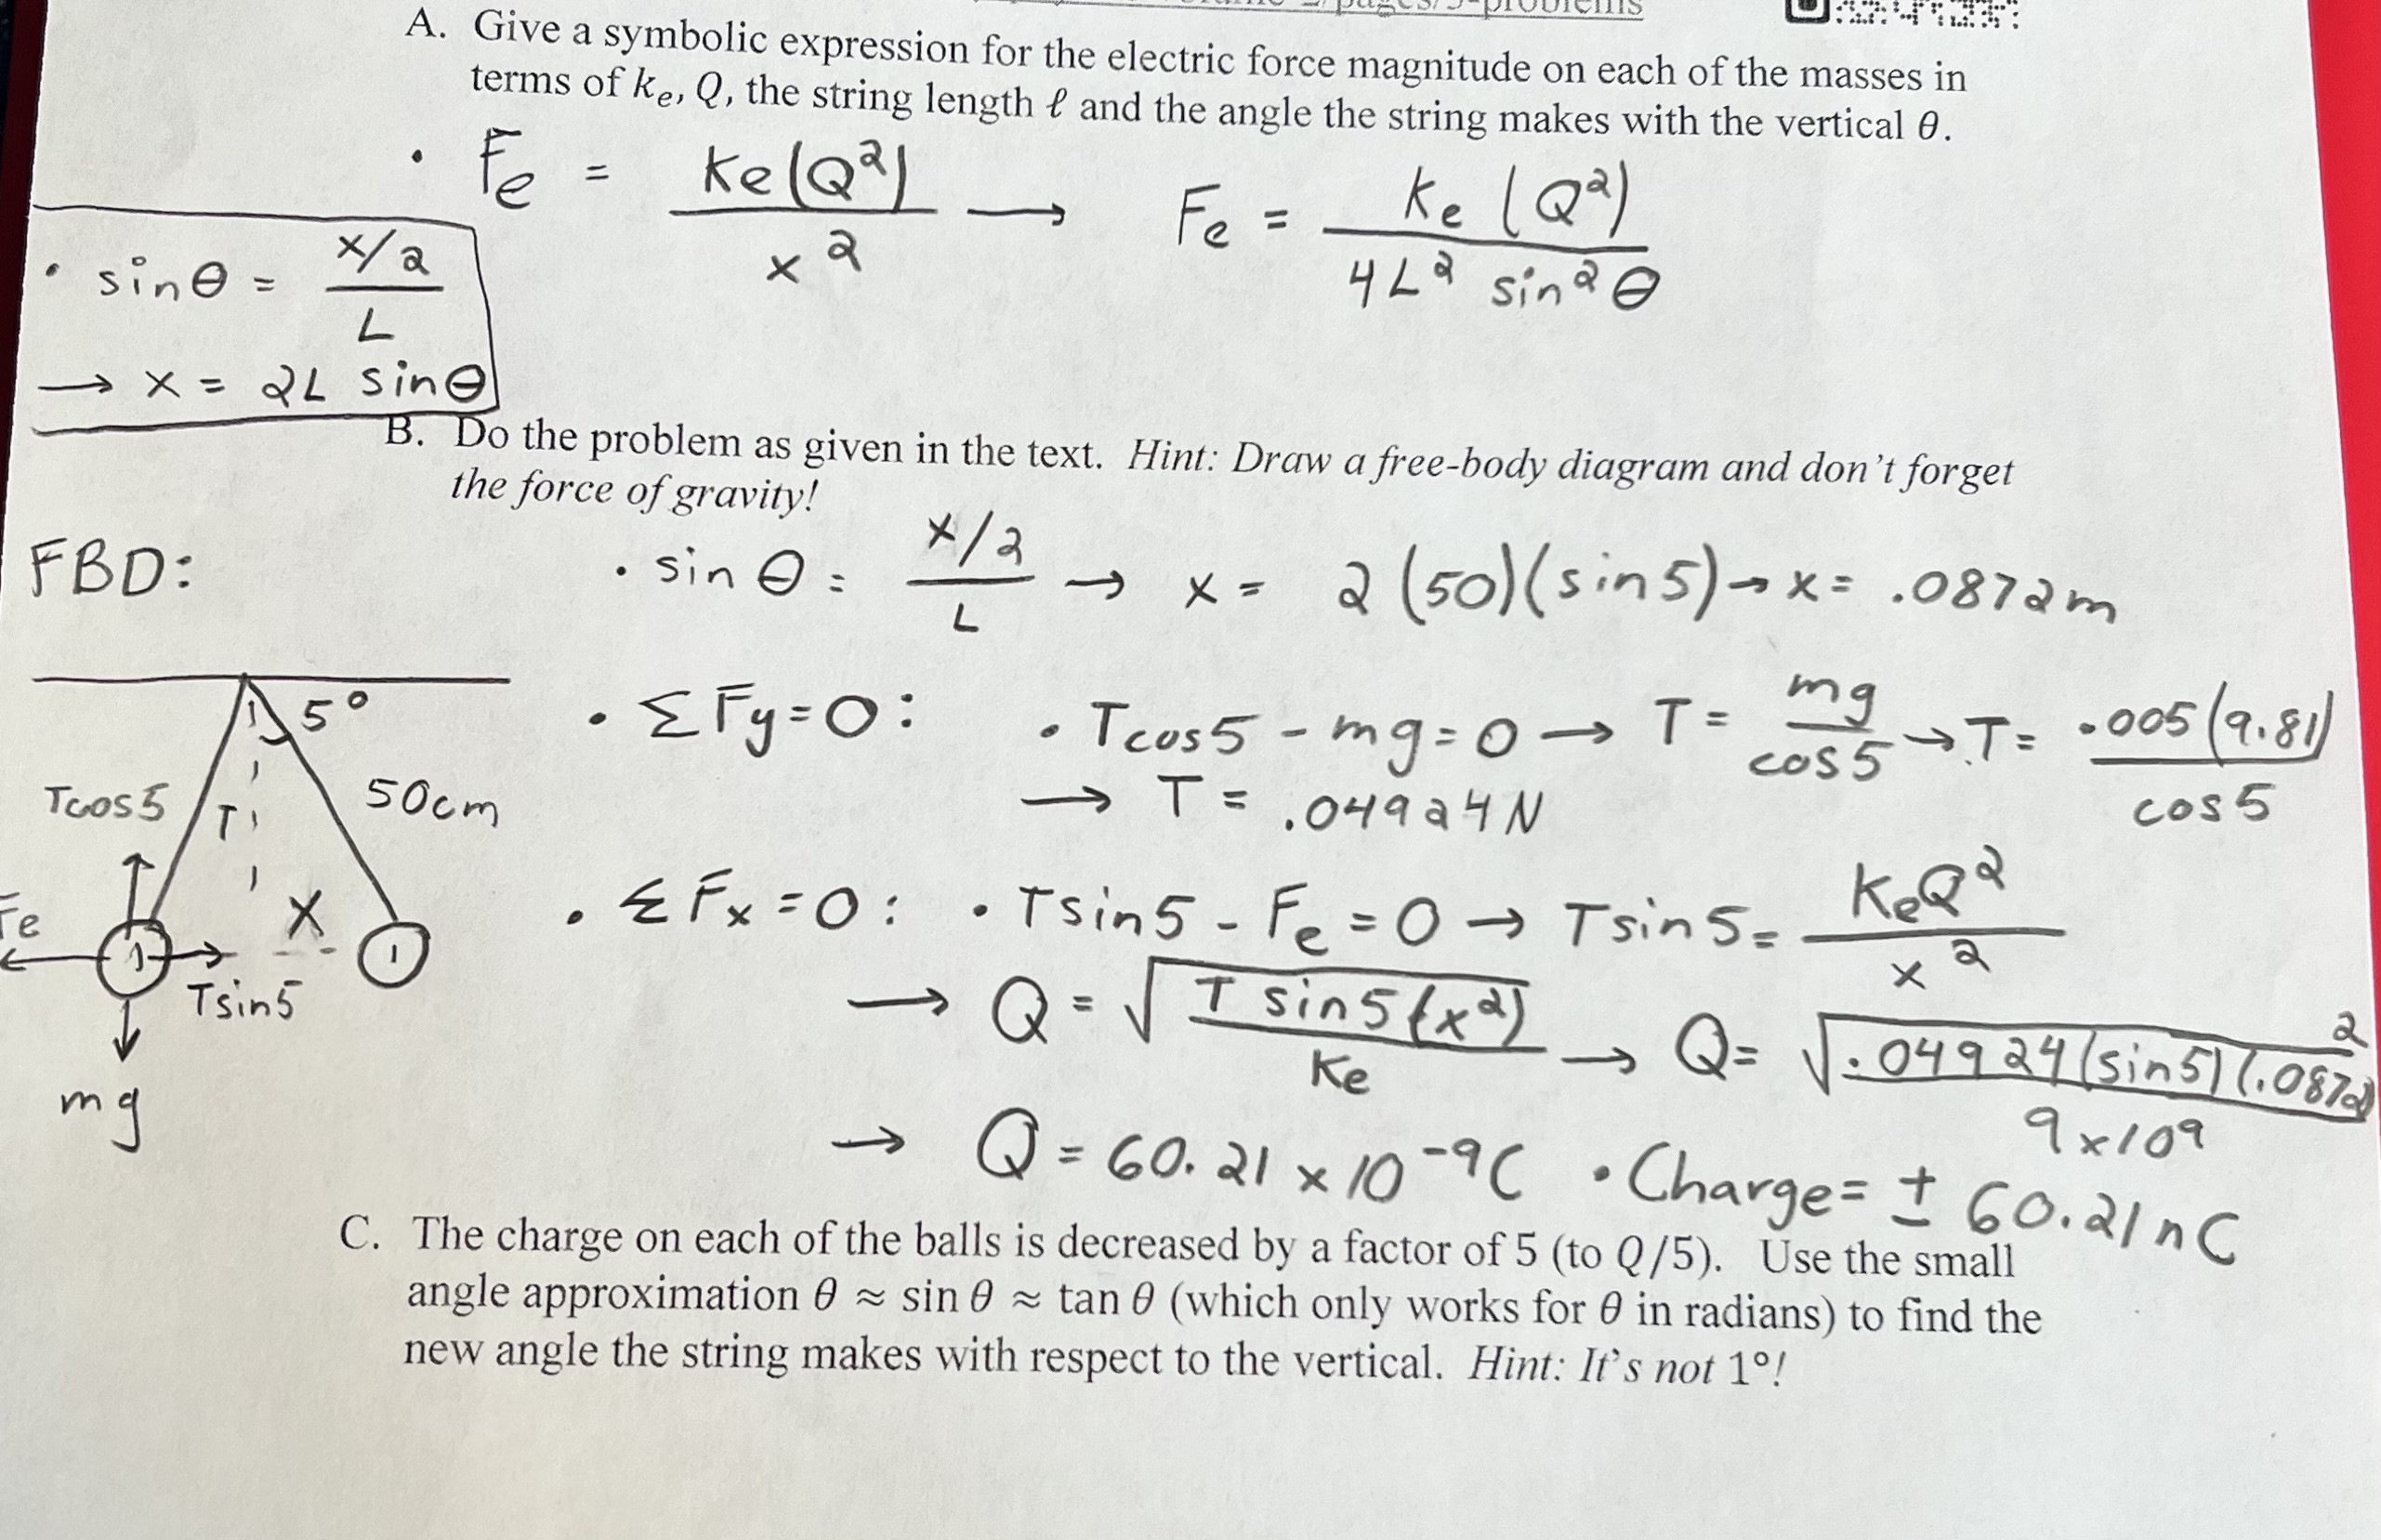 A. Give a symbolic expression for the electric force magnitude on each of the masses in
terms of kₑ, Q, the string length ℓ and the angle the string makes with the vertical θ.
• Fe = Ke(Q²) / x² → Fe = Ke (Q²) / 4L² sin²θ
• sinθ = x/2 / L
→ x = 2L sinθ
B. Do the problem as given in the text. Hint: Draw a free-body diagram and don't forget
the force of gravity!
FBD:
• sin θ = x/2 / L → x = 2 (50)(sin5) → x = .0872m
5°
Tcos5
T
50cm
Fe
X
Tsin5
mg
• ΣFy=0: • Tcos5 - mg=0 → T = mg / cos5 → T = .005(9.81) / cos5
→ T = .04924N
• ΣFx=0: • Tsin5 - Fe = 0 → Tsin5 = KeQ² / x²
→ Q = √ T sin5(x²) / Ke → Q = √ .04924(sin5)(.0872)² / 9x10⁹
→ Q = 60.21 x 10⁻⁹C • Charge = ± 60.21nC
C. The charge on each of the balls is decreased by a factor of 5 (to Q/5). Use the small
angle approximation θ ≈ sin θ ≈ tan θ (which only works for θ in radians) to find the
new angle the string makes with respect to the vertical. Hint: It's not 1°!